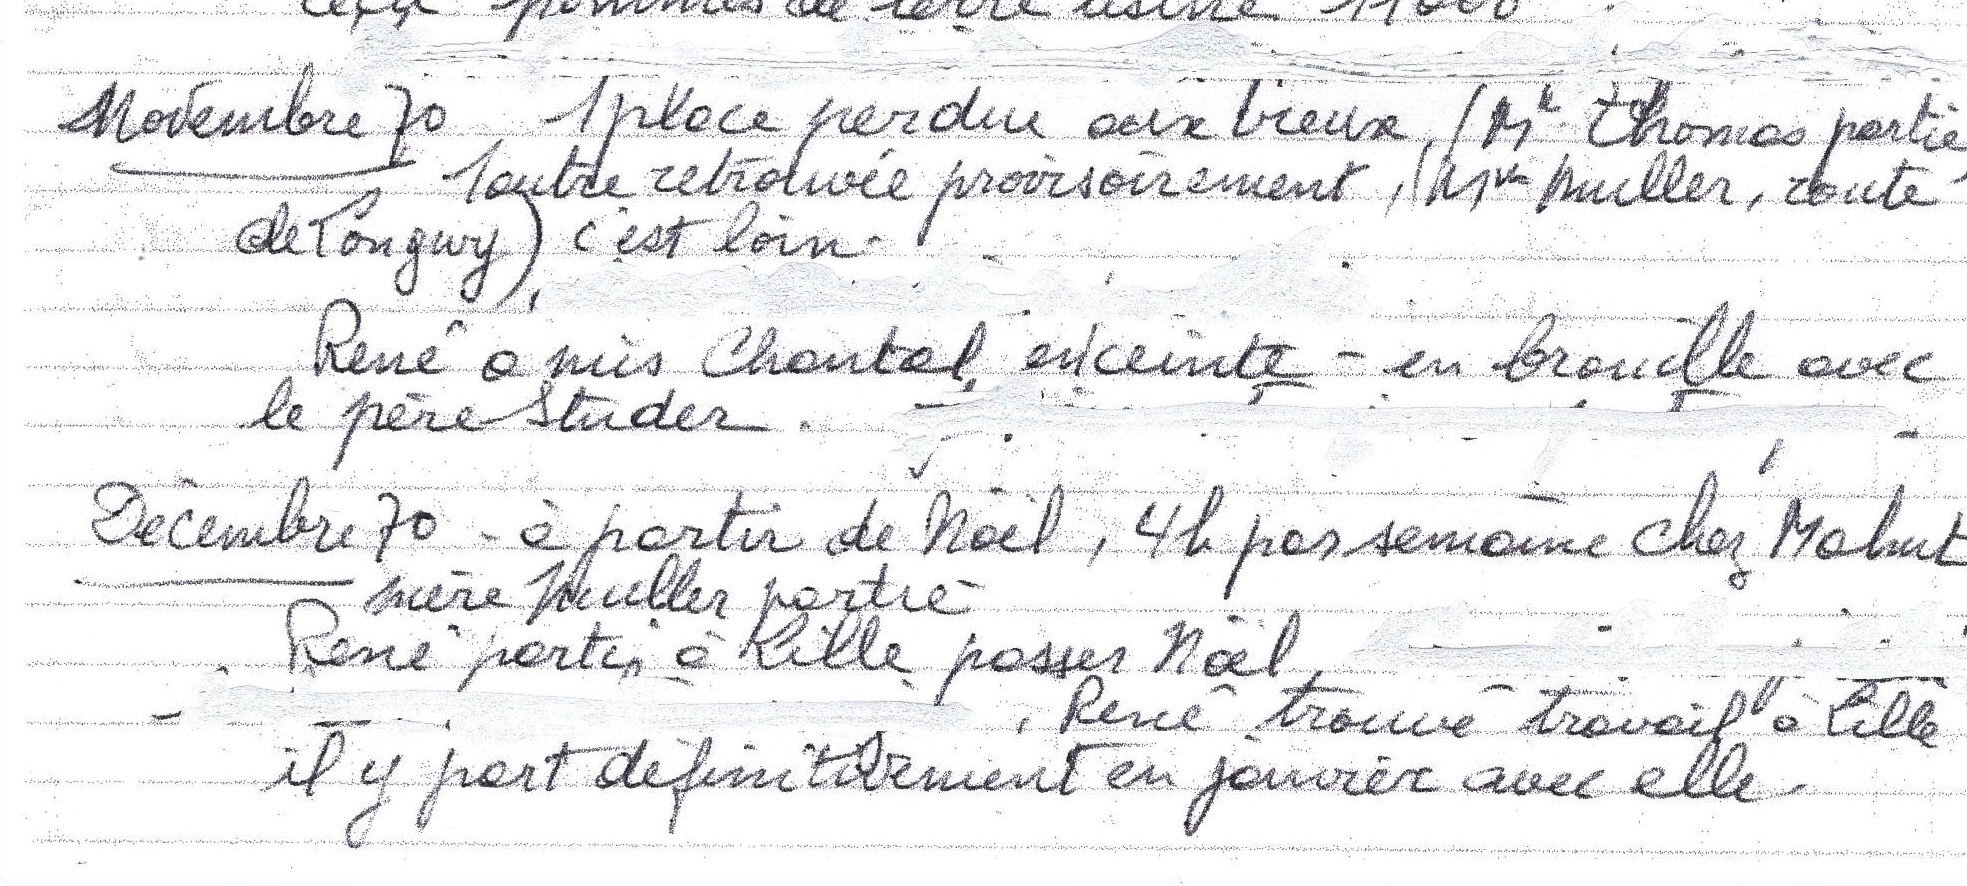 pommes de terre usine
Novembre 70 1 place perdue aux vieux, (Me Thomas partie
1 autre retrouvée provisoirement, (Me Muller, route
de Longwy) c'est loin.
René a mis Chantal enceinte - en brouille avec
le père Studer.
Décembre 70 - à partir de Noël, 4h par semaine chez Mahut
mère Muller partie
René parti à Lille passer Noël
René trouvé travail à Lille
il y part définitivement en janvier avec elle.